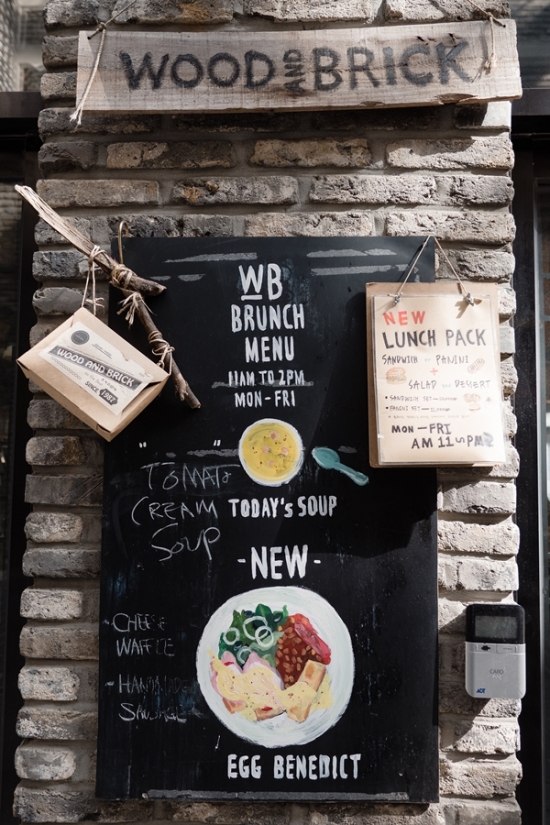 WOOD AND BRICK
WB
BRUNCH
MENU
11AM TO 2PM
MON-FRI
"            "
TOMATO
CREAM
SOUP
TODAY'S SOUP
-NEW-
- CHEESE
WAFFLE
- HANDMADE
SAUSAGE
EGG BENEDICT
WOOD AND BRICK
SINCE
NEW
LUNCH PACK
SANDWICH PANINI
+
SALAD DESSERT
• SANDWICH SET
• PANINI SET
MON-FRI
AM 11~5PM
CARD